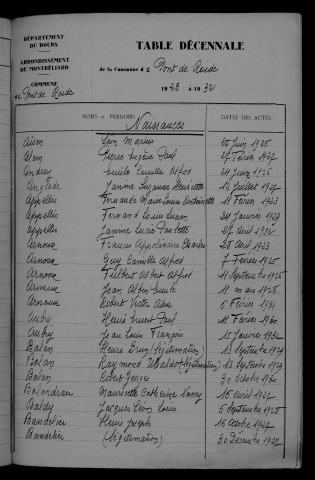 DÉPARTEMENT
DU DOUBS
ARRONDISSEMENT
DE MONTBÉLIARD
COMMUNE
de Pont de Roide
TABLE DÉCENNALE
de la Commune de Pont de Roide
1923 à 1932
NOMS et PRÉNOMS
DATES DES ACTES
Naissances
Léon Marius 25 Juin 1926
Pierre Eugène Paul 27 Février 1927
Andrey Emile Camille Alfred 24 Juin 1925
Anglade Janine Suzanne Henriette 12 Juillet 1927
Appellis Fernande Marie Louise Antoinette
Appellis Fernand Louis 24 Janvier 1929
Appellis Janine Lucie Paulette 27 Avril 1932
Arnoux Francis Apollinaire Charles Avril 1923
Arnoux Guy Camille Alfred 7 Février 1925
Arnoux Albert Alfred 11 Septembre 1926
Arnoux Jean Albert 11 mai 1928
Arnoux Robert Victor 6 Février 1931
Aubry Henri Ernest Paul 11 Février 1930
Aubry Jean Louis François 15 Janvier 1932
Balan (légitimation) 13 Septembre 1929
Balan Raymond (légitimation) 13 Septembre 1929
Balan Robert Georges 30 Octobre 1930
Balandrau Mauricette Catherine 16 Avril 1927
Baldy Jacques Léon Louis 6 Septembre 1925
Bandelier Henri Joseph 16 Octobre 1927
Bandelier (légitimation) 30 Décembre 1927